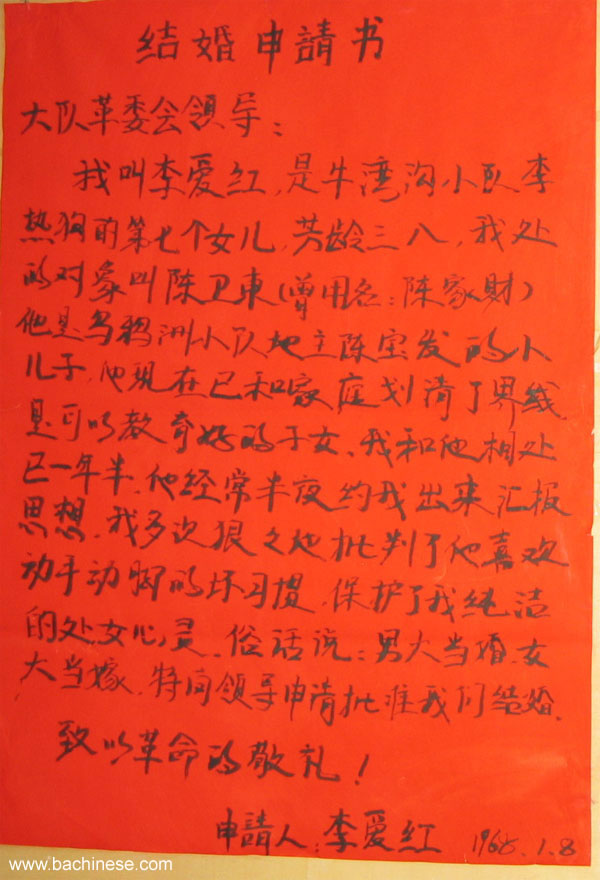 结婚申請书
大队革委会领导：
我叫李爱红，是牛湾沟小队李
热狗的第七个女儿，芳龄三八，我处
的对象叫陈卫東（曾用名：陈家财）
他是乌鸦洲小队地主陈宝发的小
儿子，他现在已和家庭划清了界线
是可以教育好的子女、我和他相处
已一年半，他经常半夜约我出来汇报
思想，我多次狠々地批判了他喜欢
动手动脚的坏习惯，保护了我纯洁
的处女心灵，俗话说：男大当婚，女
大当嫁，特向领导申请批准我们结婚，
致以革命的敬礼！
申請人：李爱红 1968.1.8
www.bachinese.com